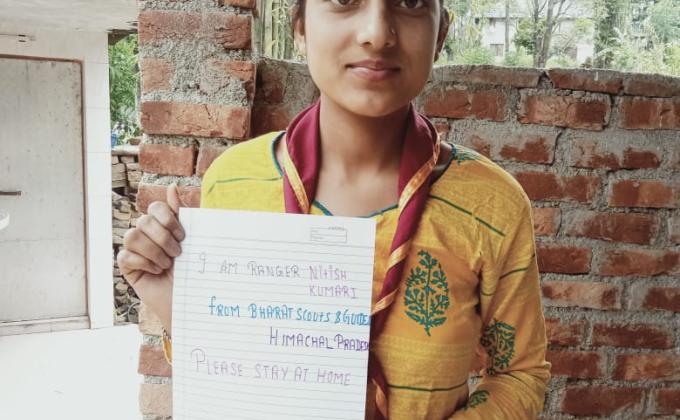 I AM RANGER NITISH
KUMARI
FROM BHARAT SCOUTS & GUIDES
HIMACHAL PRADESH
PLEASE STAY AT HOME